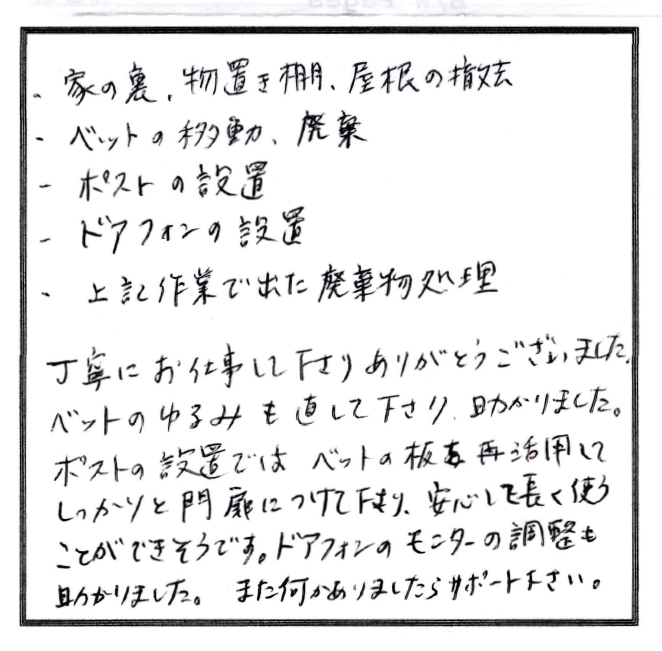 - 家の裏、物置き棚、屋根の撤去
- ベットの移動、廃棄
- ポストの設置
- ドアフォンの設置
- 上記作業で出た廃棄物処理
丁寧にお仕事して下さりありがとうございました。
ベットのゆるみも直して下さり、助かりました。
ポストの設置ではベットの板を再活用して
しっかりと門扉につけて下さり、安心して長く使う
ことができそうです。ドアフォンのモニターの調整も
助かりました。また何かありましたらサポート下さい。